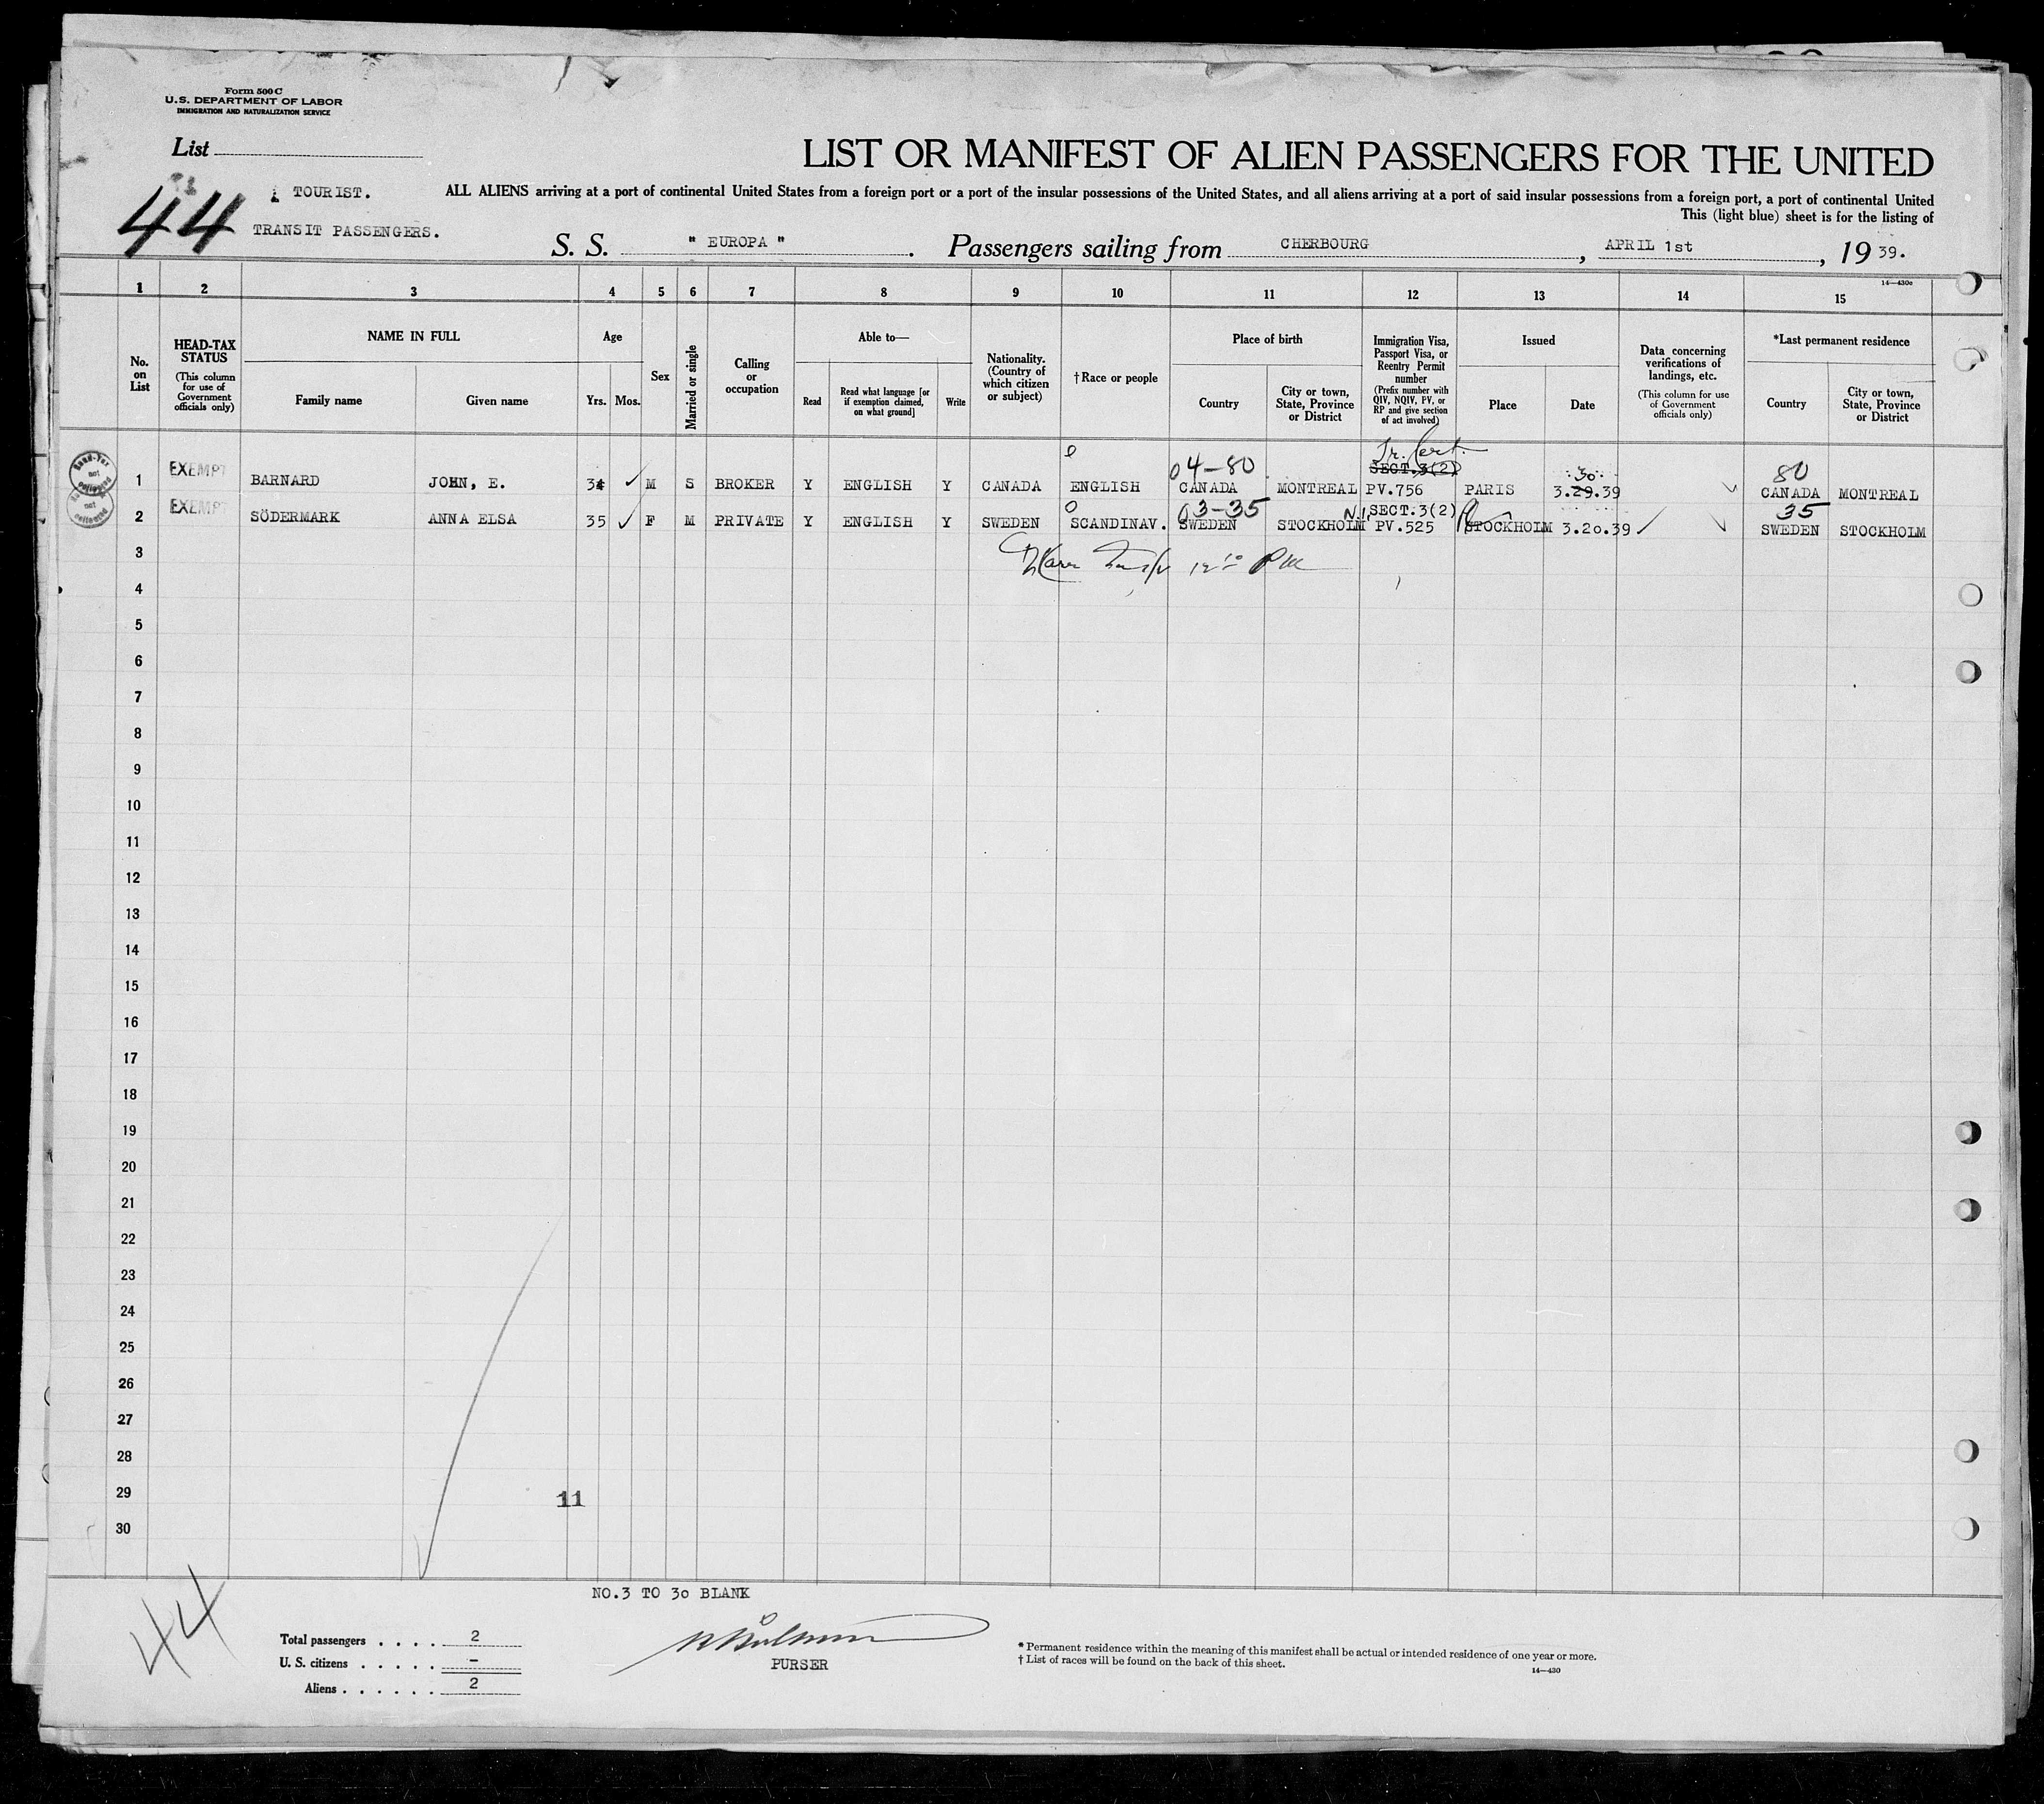 Form 500 C
U.S. DEPARTMENT OF LABOR
IMMIGRATION AND NATURALIZATION SERVICE
List
LIST OR MANIFEST OF ALIEN PASSENGERS FOR THE UNITED
44
TOURIST.
TRANSIT PASSENGERS.
ALL ALIENS arriving at a port of continental United States from a foreign port or a port of the insular possessions of the United States, and all aliens arriving at a port of said insular possessions from a foreign port, a port of continental United
This (light blue) sheet is for the listing of
S. S. " EUROPA ". Passengers sailing from CHERBOURG, APRIL 1st, 19 39.
14—430c
1 2 3 4 5 6 7 8 9 10 11 12 13 14 15
No. on List
HEAD-TAX STATUS (This column for use of Government officials only)
NAME IN FULL
Family name Given name
Age
Yrs. Mos.
Sex
Married or single
Calling or occupation
Able to—
Read
Read what language [or if exemption claimed, on what ground]
Write
Nationality. (Country of which citizen or subject)
†Race or people
Place of birth
Country
City or town, State, Province or District
Immigration Visa, Passport Visa, or Reentry Permit number (Prefix number with QIV, NQIV, PV, or RP and give section of act involved)
Issued
Place Date
Data concerning verifications of landings, etc. (This column for use of Government officials only)
*Last permanent residence
Country
City or town, State, Province or District
Tr. Cert.
04-80 SECT.3(2) 30 80
Head-Tax not collected
1 EXEMPT BARNARD JOHN, E. 34 M S BROKER Y ENGLISH Y CANADA ENGLISH CANADA MONTREAL PV.756 PARIS 3.29.39 CANADA MONTREAL
03-35 SECT.3(2) 35
not collected
2 EXEMPT SÖDERMARK ANNA ELSA 35 F M PRIVATE Y ENGLISH Y SWEDEN SCANDINAV. SWEDEN STOCKHOLM PV.525 STOCKHOLM 3.20.39 SWEDEN STOCKHOLM
3
4
5
6
7
8
9
10
11
12
13
14
15
16
17
18
19
20
21
22
23
24
25
26
27
28
29 11
30
NO.3 TO 30 BLANK
44
Total passengers . . . . 2
U. S. citizens . . . . . -
Aliens . . . . . . 2
PURSER
* Permanent residence within the meaning of this manifest shall be actual or intended residence of one year or more.
† List of races will be found on the back of this sheet.
14—430